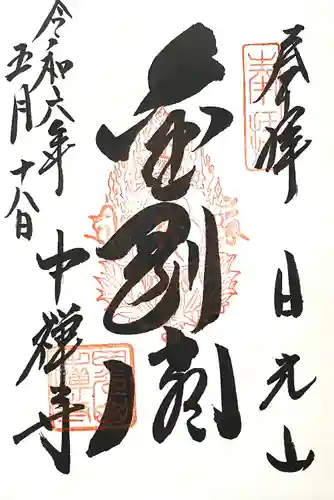 奉拝 日光山
金剛剣
中禅寺
令和六年
五月十八日